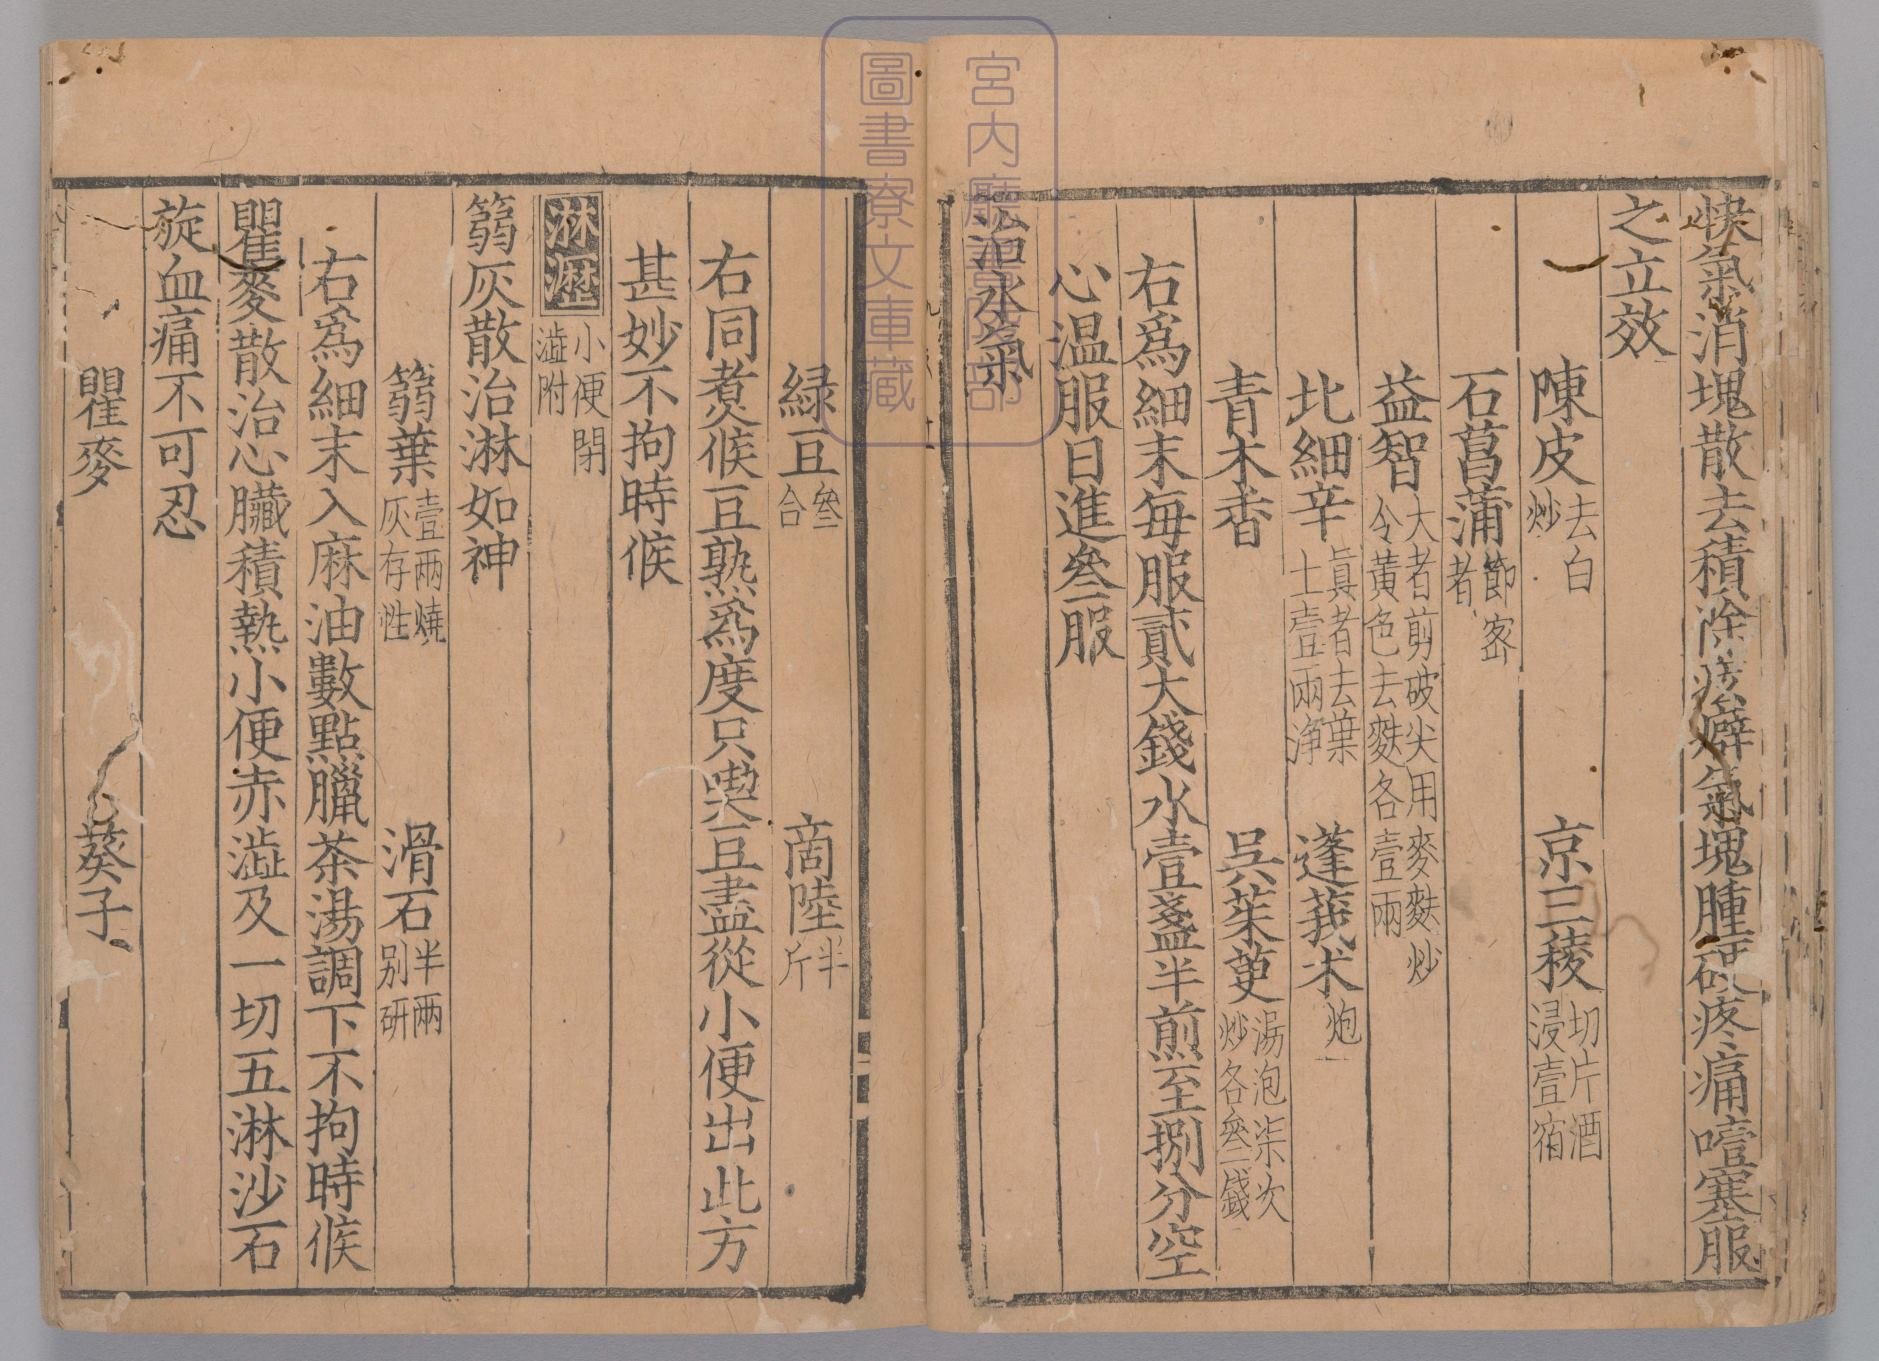 快氣消塊散去積除痃癖氣塊腫硬疼痛噎塞服
之立效
陳皮去白炒 京三稜切片酒浸壹宿
石菖蒲節密者
益智大者剪破尖用麥麩炒令黃色去麩各壹兩
北細辛眞者去葉土壹兩淨 蓬莪朮炮
青木香 吳茱萸湯泡柒次炒各叄錢
右爲細末每服貳大錢水壹盞半煎至捌分空
心溫服日進叄服
治水氣
綠豆叄合 商陸半斤
右同煑候豆熟爲度只喫豆盡從小便出此方
甚妙不拘時候
淋瀝小便閉澁附
篛灰散治淋如神
篛葉壹兩燒灰存性 滑石半兩別研
右爲細末入麻油數點臘茶湯調下不拘時候
瞿麥散治心臟積熱小便赤澁及一切五淋沙石
旋血痛不可忍
瞿麥 葵子
宮内廳書陵部
圖書寮文庫藏